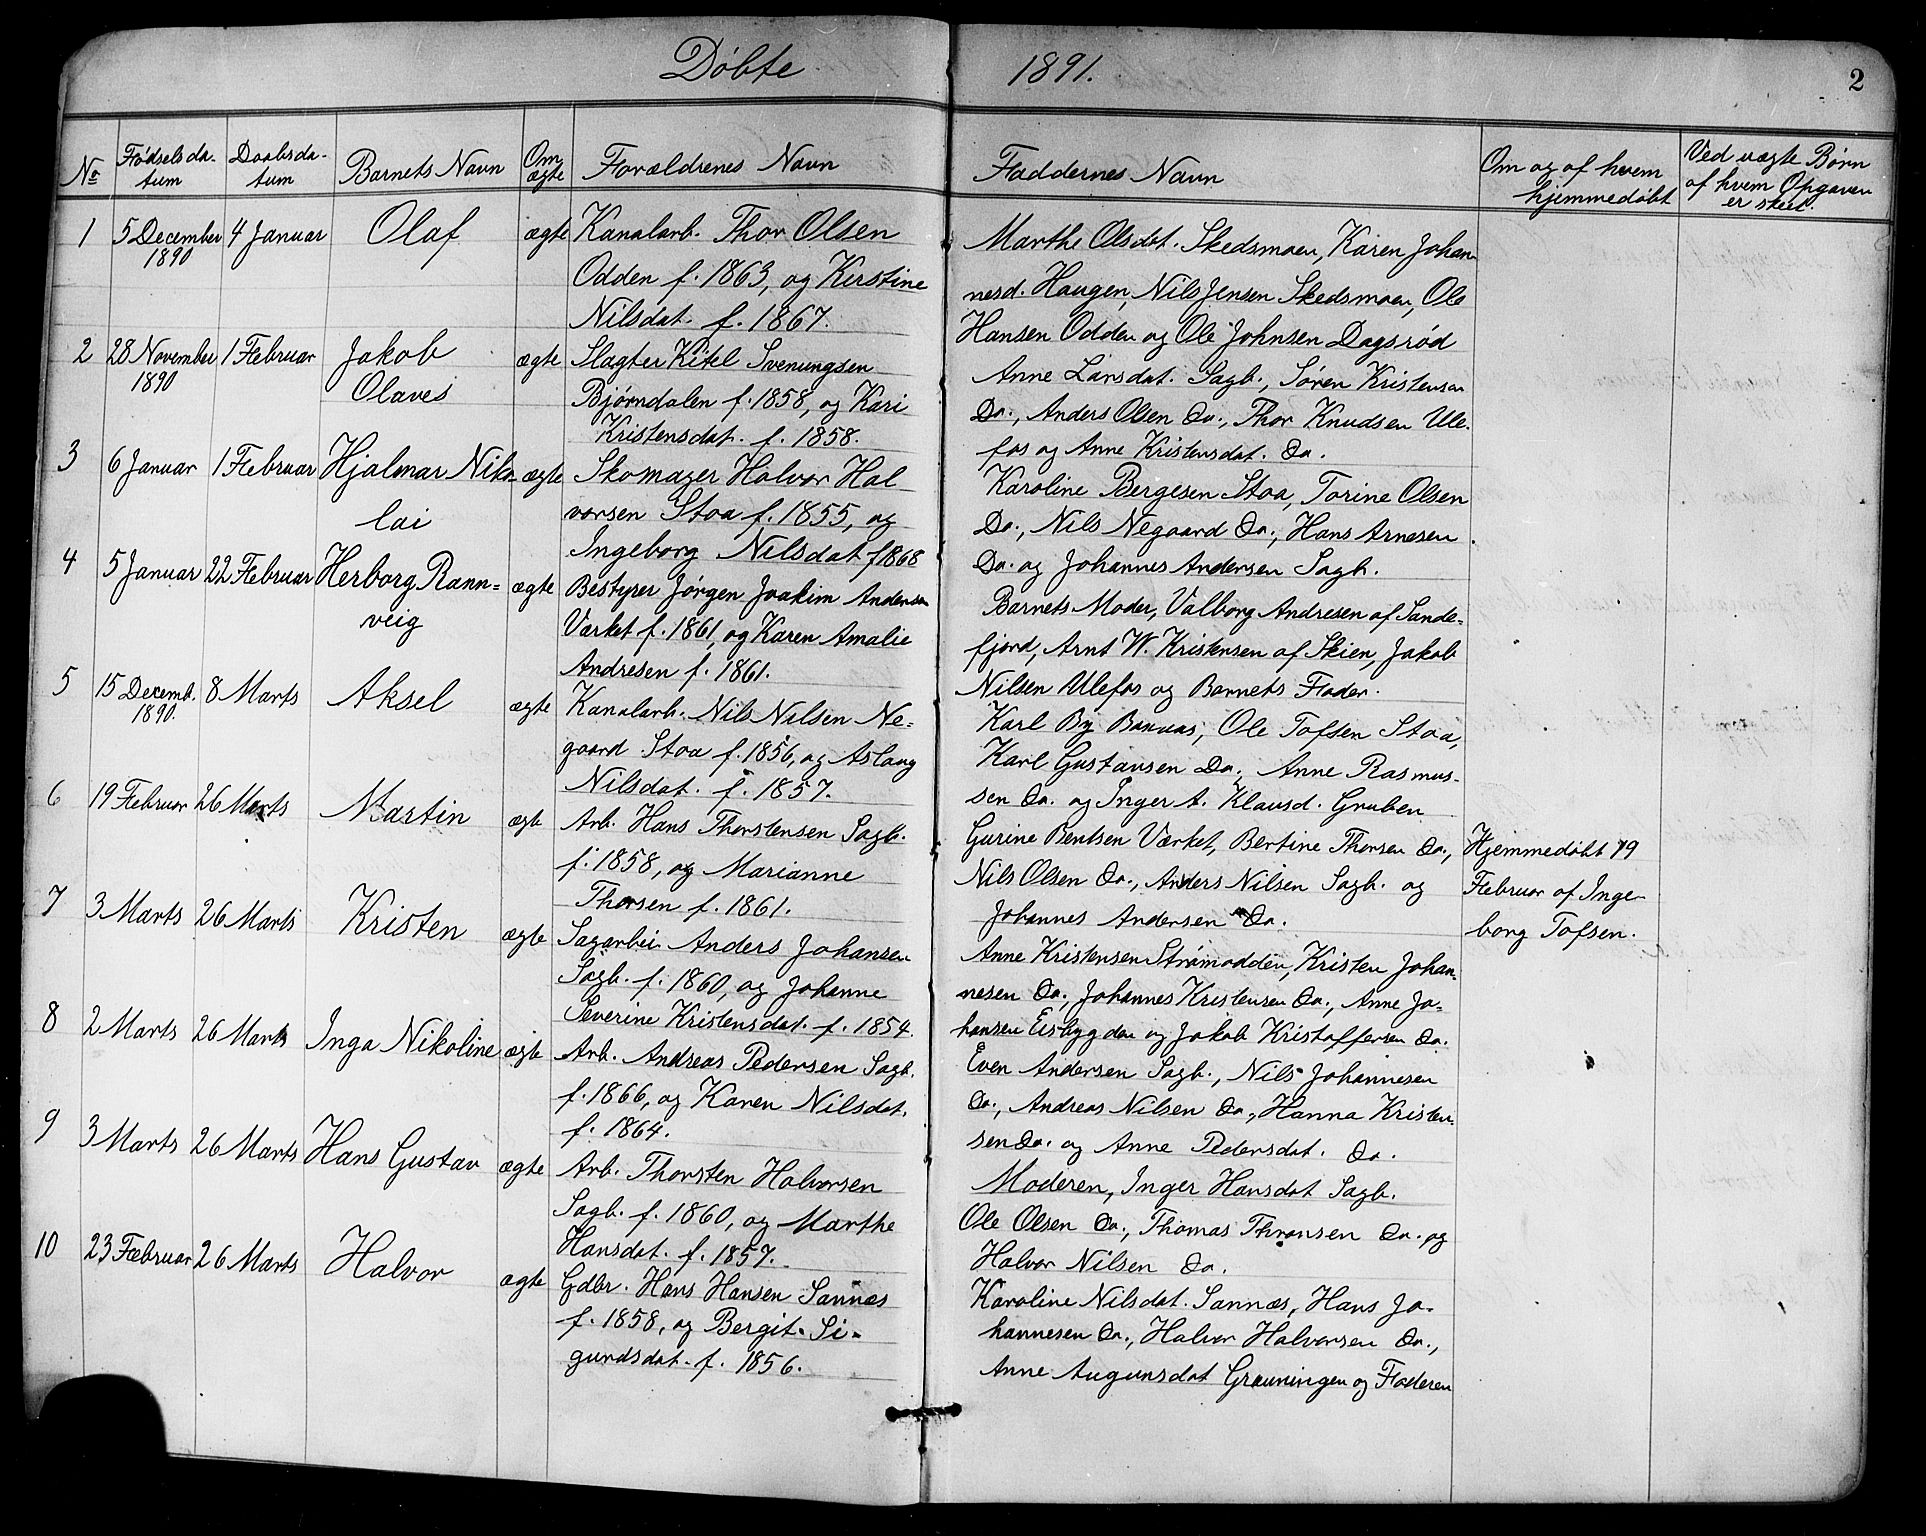 Døbte 1891. 2
No Fødselsdatum Daabsdatum Barnets Navn Om ægte Forældrenes Navn Faddernes Navn Om og af hvem hjemmedøbt Ved uægte Børn af hvem Opgaven er skeet.
1 5 December 1890 4 Januar Olaf ægte Kanalarb. Thor Olsen
Odden f. 1863, og Kirstine
Nilsdat. f. 1867.
Marthe Olsdat. Skedsmoen, Karen Johan-
nesd. Haugen, Nils Jensen Skedsmoen, Ole
Hansen Odden og Ole Johnsen Dagsrød
2 28 November 1890 1 Februar Jakob Olaves ægte Slagter Kitel Svenungsen
Bjørndalen f. 1858, og Kari
Kristensdat. f. 1858.
Anne Larsdat. Sagb., Søren Kristensen
Do., Anders Olsen Do., Thor Knudsen Ule-
fos og Anne Kristensdat. Do.
3 6 Januar 1 Februar Hjalmar Niko-
lai ægte Skomager Halvor Hal
vorsen Stoa f. 1855, og
Ingeborg Nilsdat f 1868
Karoline Bergesen Stoa, Torine Olsen
Do., Nils Negaard Do., Hans Arnesen
Do. og Johannes Andersen Sagb.
4 5 Januar 22 Februar Herborg Rann=
veig ægte Bestyrer Jørgen Joakim Andersen
Værket f. 1861, og Karen Amalie
Andresen f. 1861.
Barnets Moder, Valborg Andresen af Sande-
fjord, Arnt W. Kristensen af Skien, Jakob
Nilsen Ulefos og Barnets Fader.
5 15 Decemb. 1890. 8 Marts Aksel ægte Kanalarb. Nils Nilsen Ne=
gaard Stoa f. 1856, og Aslaug
Nilsdat. f. 1857.
Karl By Banuas, Ole Tofsen Stoa,
Karl Gustavsen Do., Anne Rasmus-
sen Do. og Inger A. Klausd. Gruben
6 19 Februar 26 Marts Martin ægte Arb. Hans Thorstensen Sagb.
f. 1858, og Marianne
Thorsen f. 1861.
Gurine Bentsen Værket, Bertine Thorsen Do.,
Nils Olsen Do., Anders Nilsen Sagb. og
Johannes Andersen Do.
Hjemmedøbt 19
Februar af Inge-
borg Tofsen.
7 3 Marts 26 Marts Kristen ægte Sagarbei. Anders Johansen
Sagb. f. 1860, og Johanne
Severine Kristensdat. f. 1854.
Anne Kristensen Strømodden, Kristen Johan-
nesen Do., Johannes Kristensen Do., Anne Jo-
hansen Eisbygden og Jakob Kristoffersen Do.
8 2 Marts 26 Marts Inga Nikoline ægte Arb. Andreas Pedersen Sagb.
f. 1866, og Karen Nilsdat.
f. 1864.
Even Andersen Sagb., Nils Johannesen
Do., Andreas Nilsen Do., Hanna Kristen-
sen Do. og Anne Pedersdat. Do.
9 3 Marts 26 Marts Hans Gustav ægte Arb. Thorsten Halvorsen
Sagb. f. 1860, og Marthe
Hansdat. f. 1857.
Moderen, Inger Hansdat Sagb.
Ole Olsen Do., Thomas Thronsen Do. og
Halvor Nilsen Do.
10 23 Februar 26 Marts Halvor ægte Gdbr. Hans Hansen Sannæs
f. 1858, og Bergit Si-
gurdsdat. f. 1856.
Karoline Nilsdat. Sannæs, Hans Jo-
hannesen Do., Halvor Halvorsen Do.,
Anne Augunsdat Grauningen og Faderen